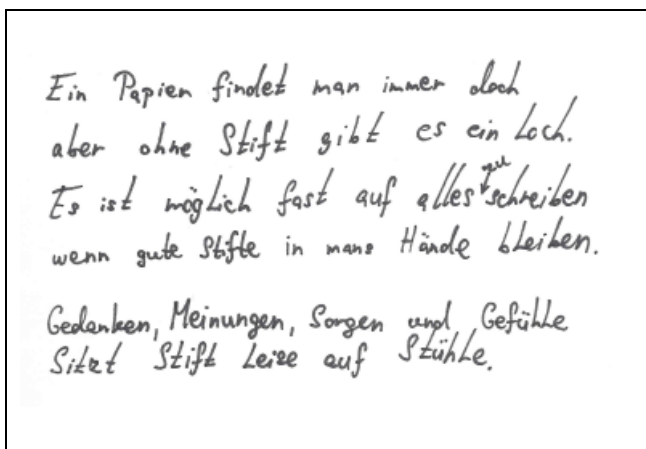 Ein Papier findet man immer doch
aber ohne Stift gibt es ein Loch.
Es ist möglich fast auf alles zu schreiben
wenn gute Stifte in mans Hände bleiben.
Gedanken, Meinungen, Sorgen und Gefühle
Sitzt Stift Leise auf Stühle.